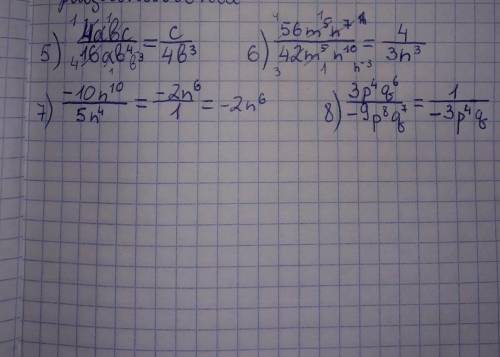 5) 4abc/16ab⁴ = c/4b³
6) 56m⁵n⁷/42m⁵n¹⁰ = 4/3n³
7) -10n¹⁰/5n⁴ = -2n⁶/1 = -2n⁶
8) 3p⁴q⁶/-9p⁸q⁷ = 1/-3p⁴q